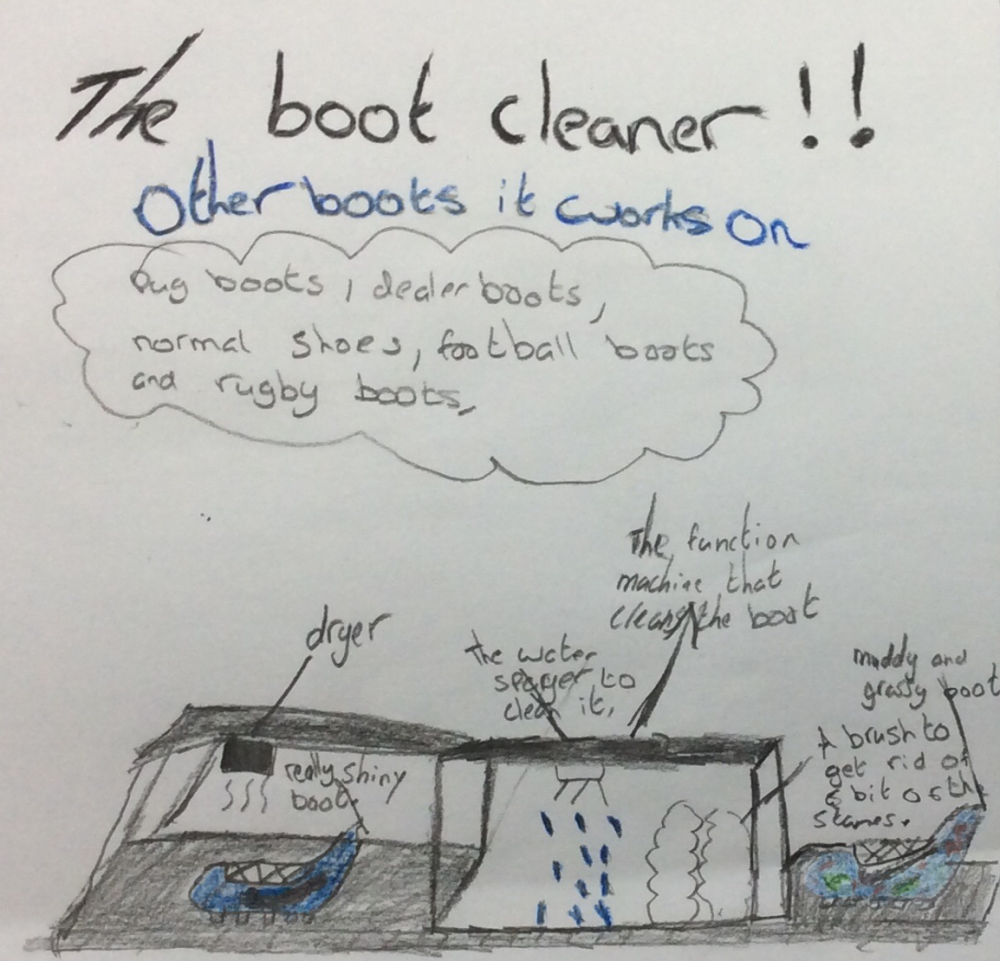 The boot cleaner!!
Other boots it works on
bug boots, dealer boots,
normal shoes, football boots
and rugby boots,
The function
machine that
cleans the boot
dryer
the water
sprayer to
clean it,
muddy and
grassy boot
A brush to
get rid of
a bit of the
stanes.
really shiny
boot